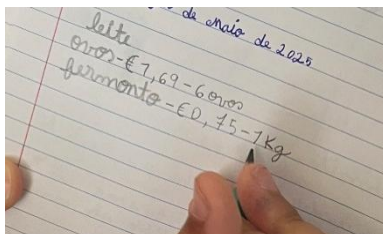 de Maio de 2025
leite
ovos-€1,69-6 ovos
fermonto-€0,75-1Kg